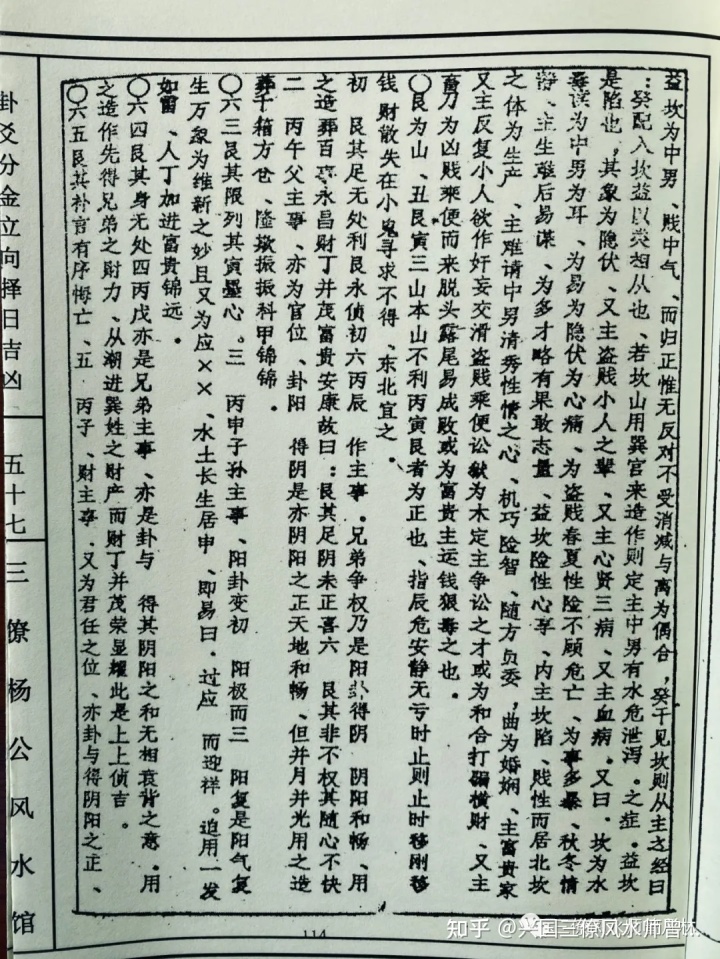 益坎为中男、贱中气、而归正惟无反对不受消减与离为偶合，癸干见坎则从主之经曰
：癸配入坎益以类相从也、若坎山用巽宫来造作则定主中男有水危泄泻。之症。益坎
是陷也，其象为隐伏、又主盗贱小人之辈、又主心贤三病、又主血病。又曰．坎为水
毒误为中男为耳、为易为隐伏为心痛、为盗贱春夏性险不顾危亡、为事多暴、秋冬情
静、主生难后易谋、为多才略有果敢志量、益坎险性心享、内主坎陷、贱性而居北坎
之体为生产、主难请中男清秀性情之心、机巧险智、随方负委，曲为婚姻、主富贵家
又主反复小人欲作奸妄交滑盗贱乘便讼狱为木定主争讼之才或为和合打骗横财、又主
畜力为凶贱乘便而来脱头露尾易成败或为富贵主运钱狠毒之也．
〇艮为山、丑艮寅三山本山不利丙寅艮者为正也、指辰危安静无亏时止则止时移刚移
钱、财散失在小鬼寻求不得、东北宜之．
初　艮其足无处利艮永侦初六丙辰　作主事。兄弟争权乃是阳卦得阴　阴阳和畅、用
之造葬百事永昌财丁并茂富贵安康故曰：艮其足阴未正喜六　艮其非不权其随心不快
二　丙午父主事、亦为官位、卦阳　得阴是亦阴阳之正天地和畅、但并月并光用之造
葬千箱方仓、隆欻振振科甲锦锦．
〇六三艮其限列其寅墨心。三　丙申子孙主事、阳卦变初　阳极而三　阳复是阳气复
生万象为维新之妙且又为应××、水土长生居申、即易曰．过应　而迎祥。迫用一发
如雷、人丁加进富贵锦远．
〇六四艮其身无处四丙戌亦是兄弟主事、亦是卦与　得其阴阳之和无相衰背之意．用
之造作先得兄弟之财力、从潮进巽姓之财产而财丁并茂荣显耀此是上上侦吉。
〇六五艮其补言有序悔亡、五　丙子、财主事、又为君任之位、亦卦与得阴阳之正、
卦爻分金立向择日吉凶
五十七
三僚杨公风水馆
114
知乎 @兴国三僚风水师曾林